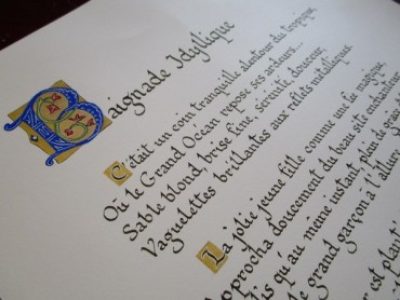 Baignade Idyllique
C'était un coin tranquille alentour du tropique,
Où le Grand Océan repose ses ardeurs...
Sable blond, brise fine, sérénité, douceur,
Vaguelettes brillantes aux reflets métalliques.
La jolie jeune fille comme une fée magique,
approcha doucement du beau site enchanteur
is qu'au même instant, plein de
le grand garçon à l'allur
er est plant